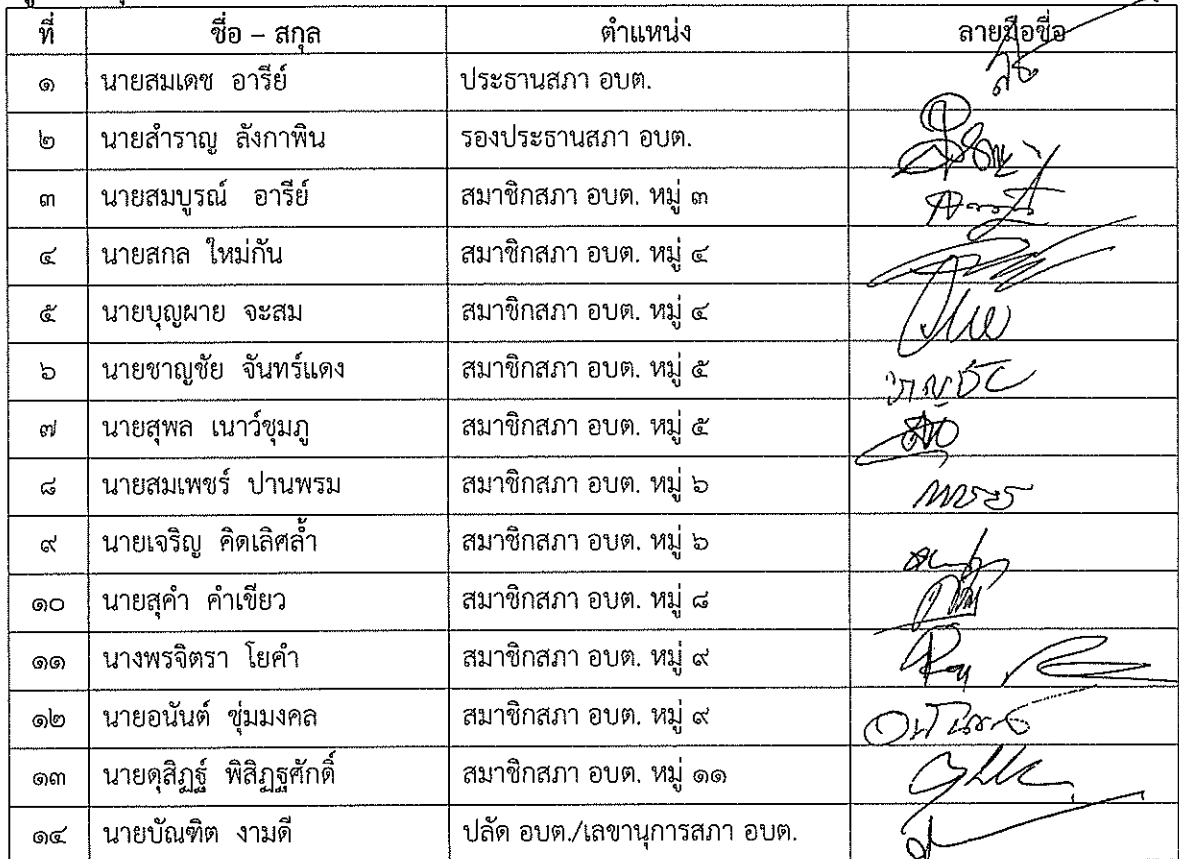 ที่ ชื่อ – สกุล ตำแหน่ง ลายมือชื่อ
๑ นายสมเดช อารีย์ ประธานสภา อบต.
๒ นายสำราญ ลังกาพิน รองประธานสภา อบต.
๓ นายสมบูรณ์ อารีย์ สมาชิกสภา อบต. หมู่ ๓
๔ นายสกล ใหม่กัน สมาชิกสภา อบต. หมู่ ๔
๕ นายบุญผาย จะสม สมาชิกสภา อบต. หมู่ ๔
๖ นายชาญชัย จันทร์แดง สมาชิกสภา อบต. หมู่ ๕ ชาญชัย
๗ นายสุพล เนาว์ชุมภู สมาชิกสภา อบต. หมู่ ๕
๘ นายสมเพชร์ ปานพรม สมาชิกสภา อบต. หมู่ ๖
๙ นายเจริญ คิดเลิศล้ำ สมาชิกสภา อบต. หมู่ ๖
๑๐ นายสุคำ คำเขียว สมาชิกสภา อบต. หมู่ ๘
๑๑ นางพรจิตรา โยคำ สมาชิกสภา อบต. หมู่ ๙
๑๒ นายอนันต์ ชุ่มมงคล สมาชิกสภา อบต. หมู่ ๙
๑๓ นายดุสิฏฐ์ พิสิฏฐศักดิ์ สมาชิกสภา อบต. หมู่ ๑๑
๑๔ นายบัณฑิต งามดี ปลัด อบต./เลขานุการสภา อบต.